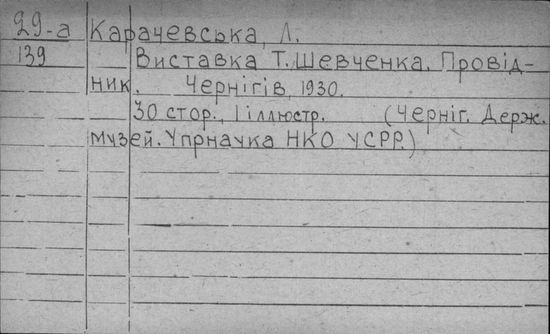 29-а Карачевська, Л.
139 Виставка Т. Шевченка. Провід-
ник. Чернігів, 1930.
30 стор., 1 ілюстр. (Черніг. Держ.
музей. Упрнаука НКО УСРР.)